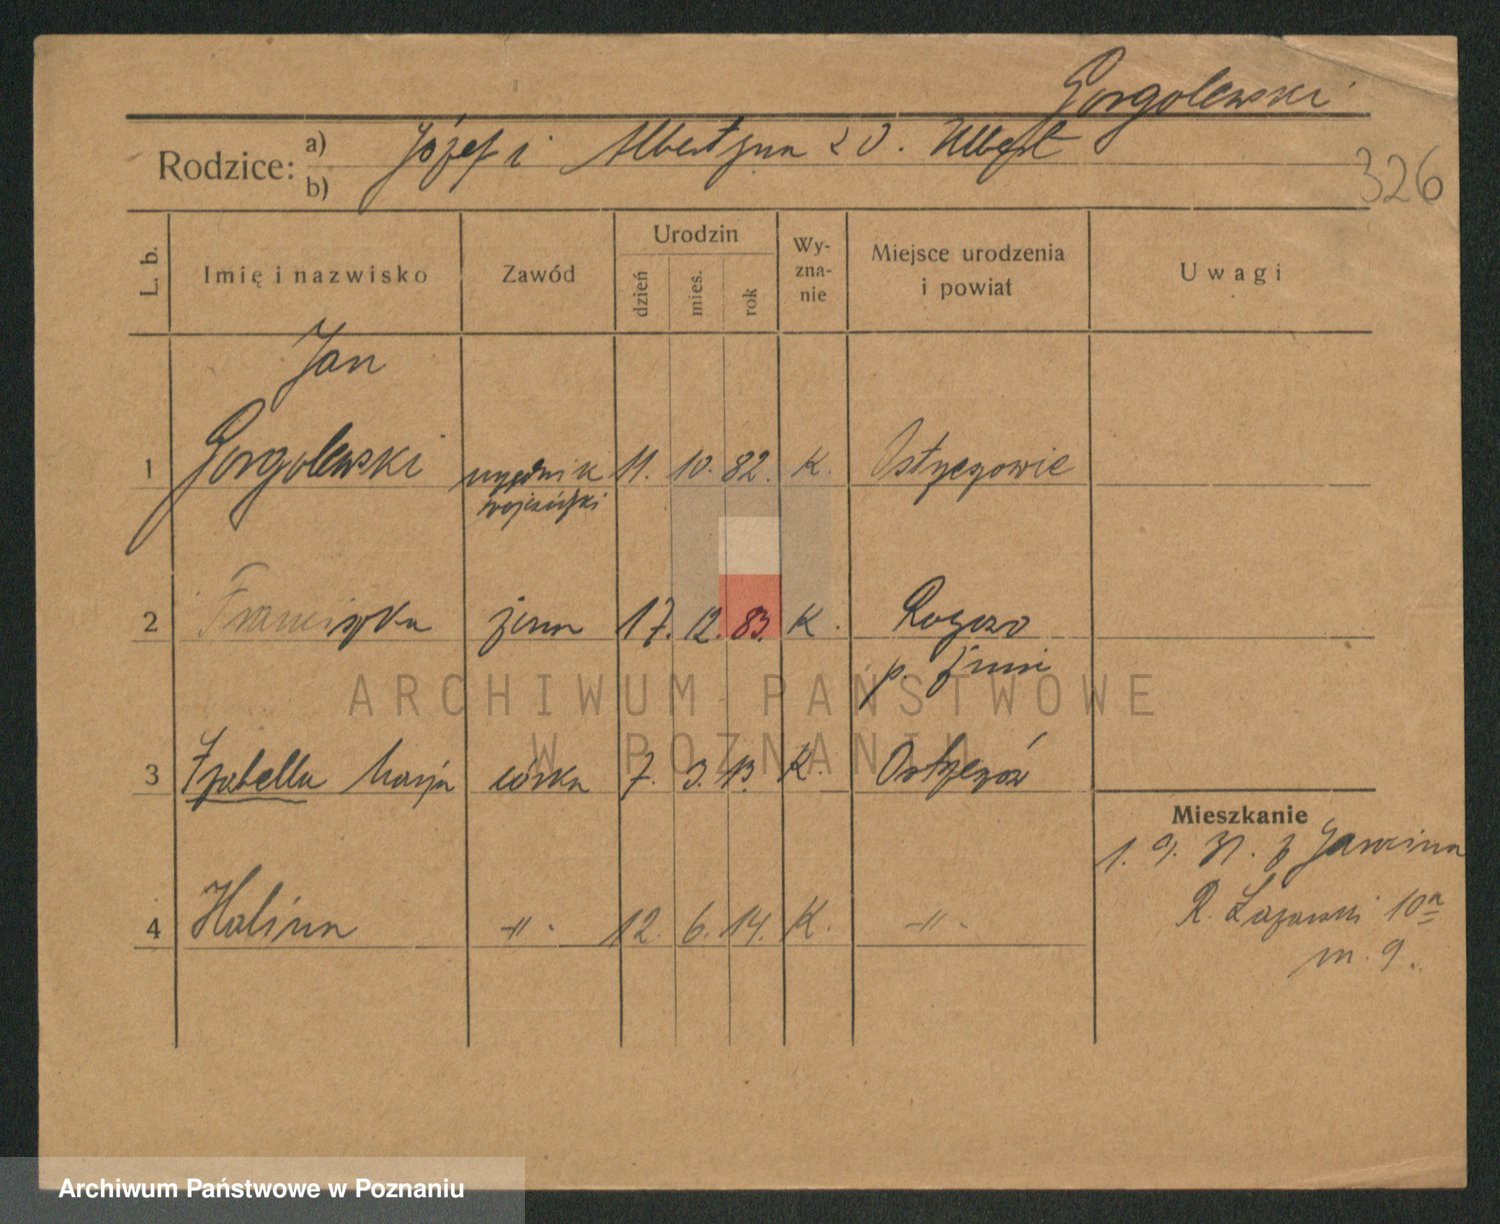 Gorgolewski
Rodzice: a) Józef i Albertyna z D. Ulbert
b)
326
L. b. Imię i nazwisko Zawód Urodzin dzień mies. rok Wy-zna-nie Miejsce urodzenia i powiat Uwagi
Jan
1 Gorgolewski urzędnik 11. 10. 82. K. Ostrzeszowie
wojewódzki
2 Franciszka żona 17. 12. 83. K.
p. Żnin
3 Izabella Marja córka 7. 3. 13. K. Ostrzeszów
Mieszkanie
1. 9. 31. z
4 Halina -"- 12. 6. 14. K. -"-
R. Łazarski 10a
m. 9.
ARCHIWUM PAŃSTWOWE
W POZNANIU
Archiwum Państwowe w Poznaniu